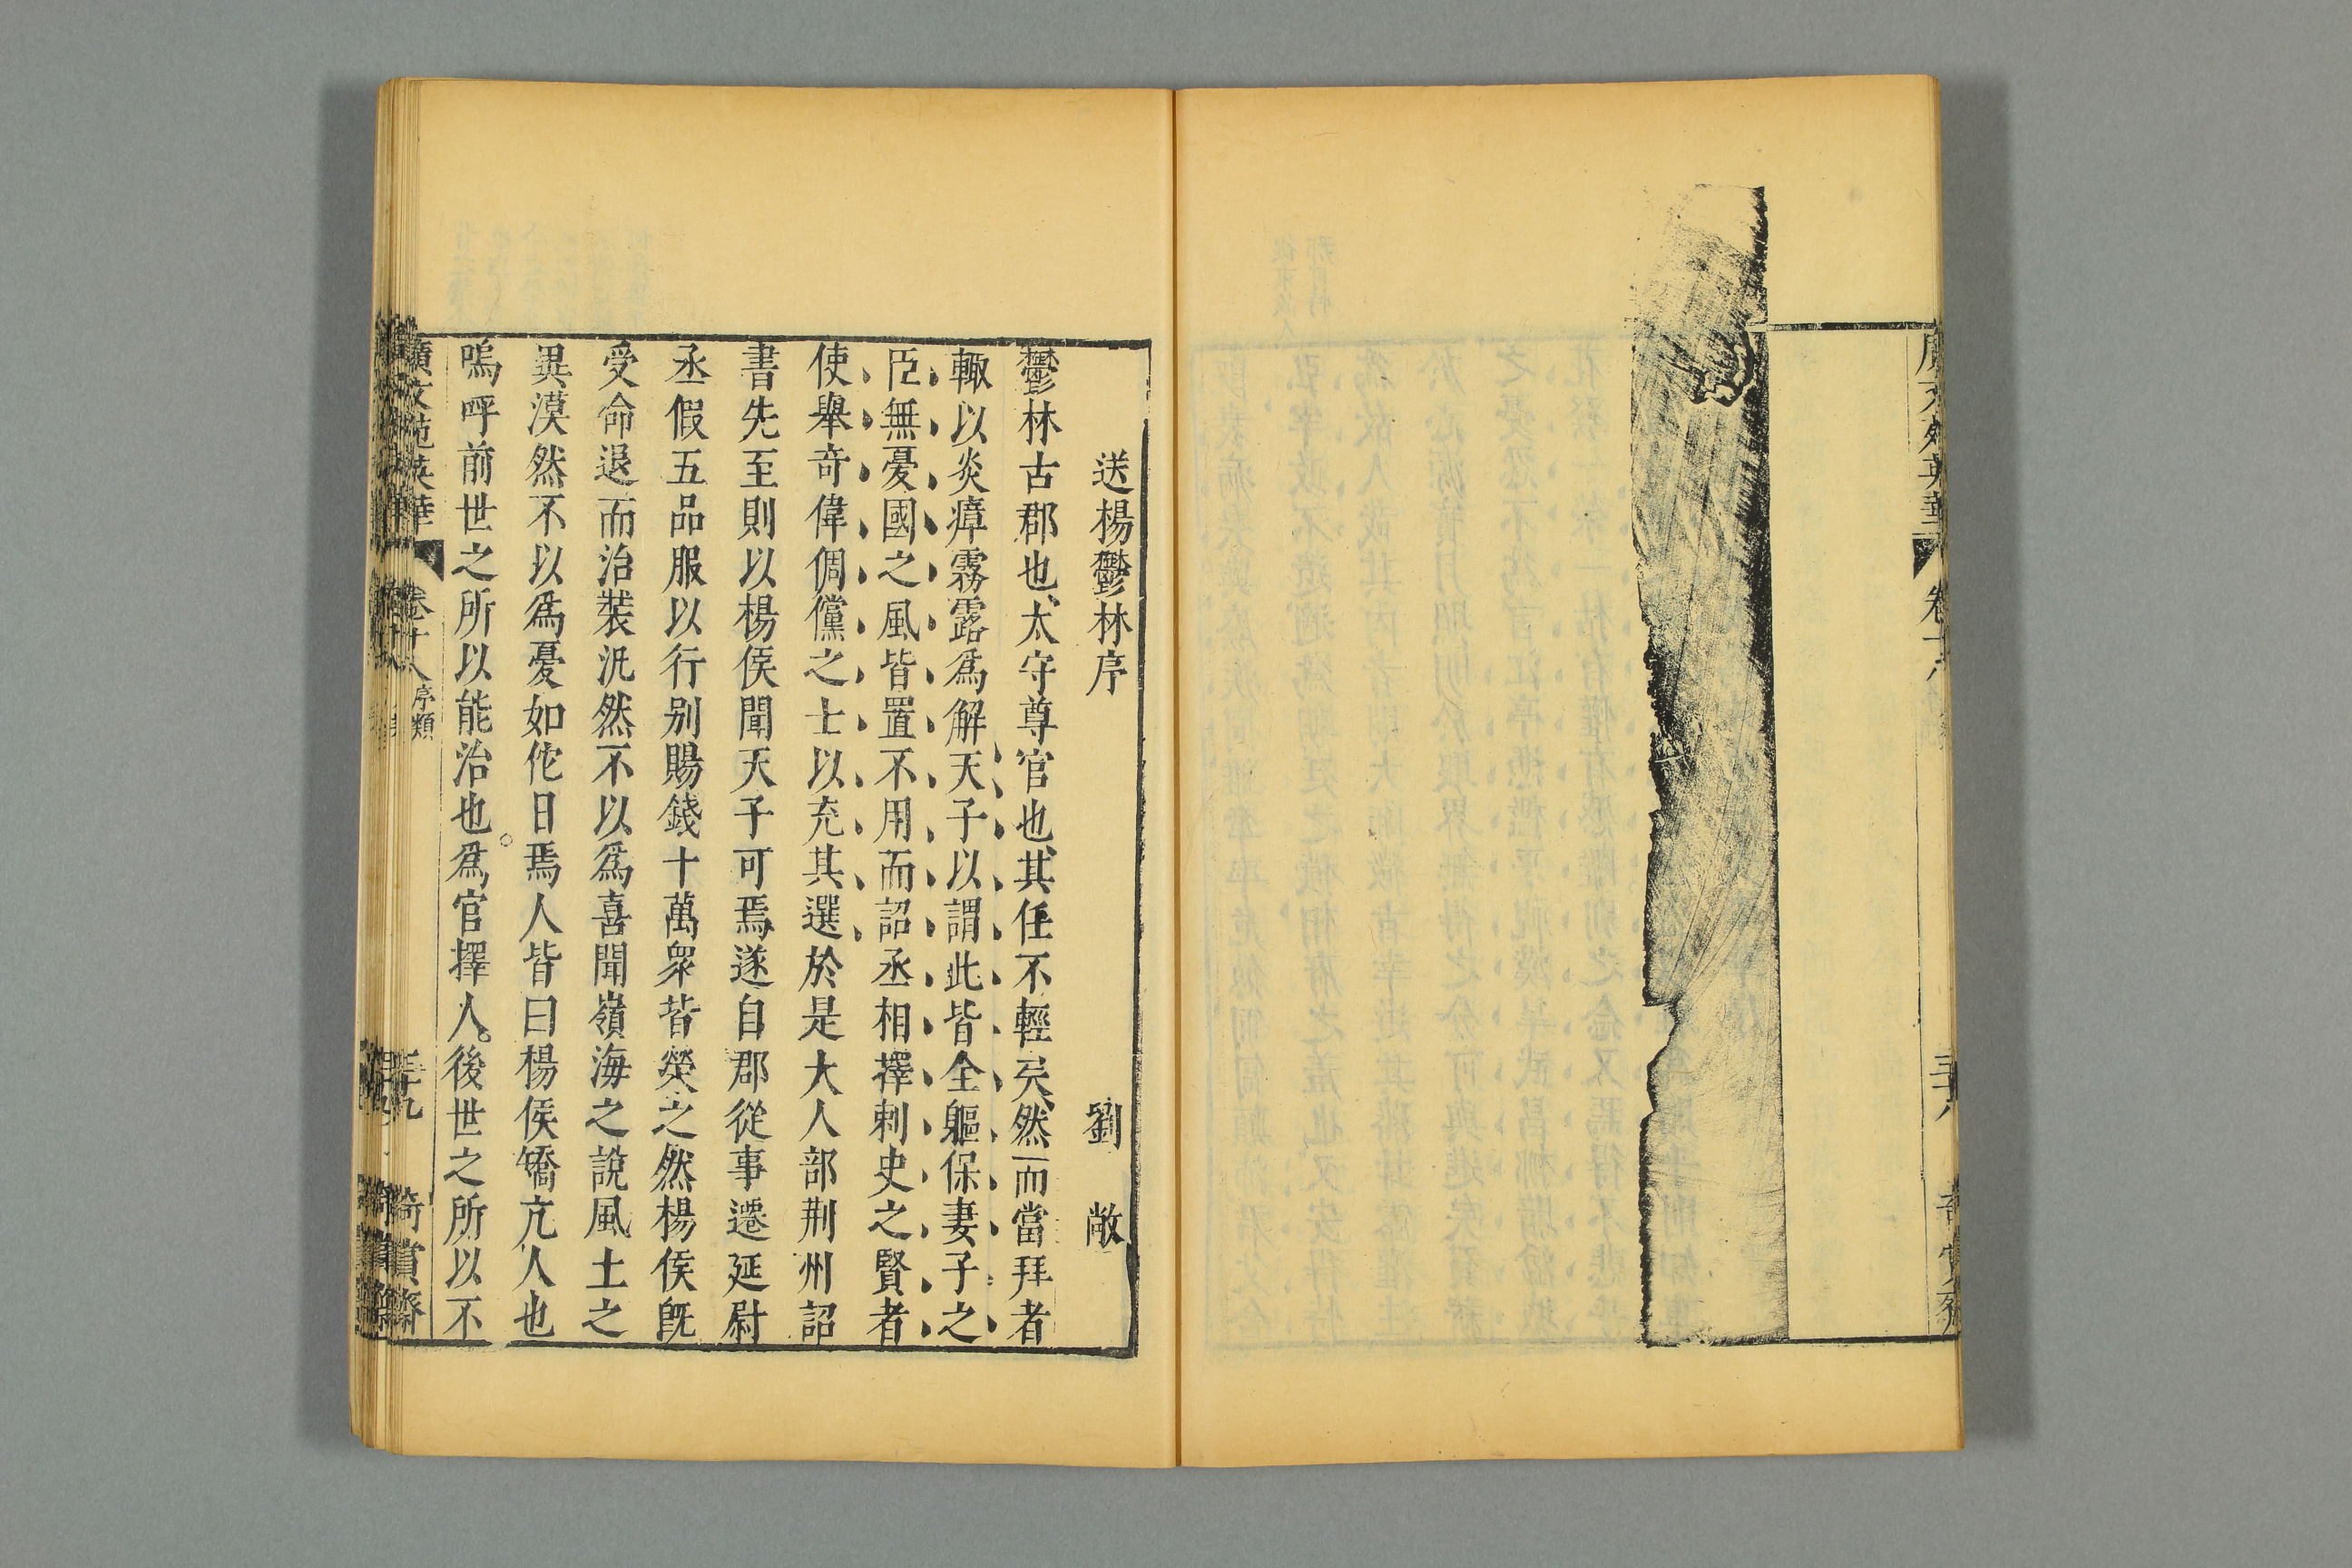 送楊鬱林序 劉敞
鬱林古郡也、太守尊官也、其任不輕矣、然而當拜者
輙以炎瘴霧露爲解天子以謂此皆全軀保妻子之
臣無憂國之風皆置不用而詔丞相擇刺史之賢者
使舉奇偉倜儻之士以充其選於是大人部荆州詔
書先至則以楊侯聞天子可焉遂自郡從事遷延尉
丞假五品服以行别賜錢十萬衆皆榮之然楊侯旣
受命退而治裝汎然不以爲喜聞嶺海之說風土之
異漠然不以爲憂如佗日焉人皆曰楊侯矯亢人也
嗚呼前世之所以能治也。爲官擇人。後世之所以不
廣文苑英華 卷十八 序類 三十九 奇賞齋